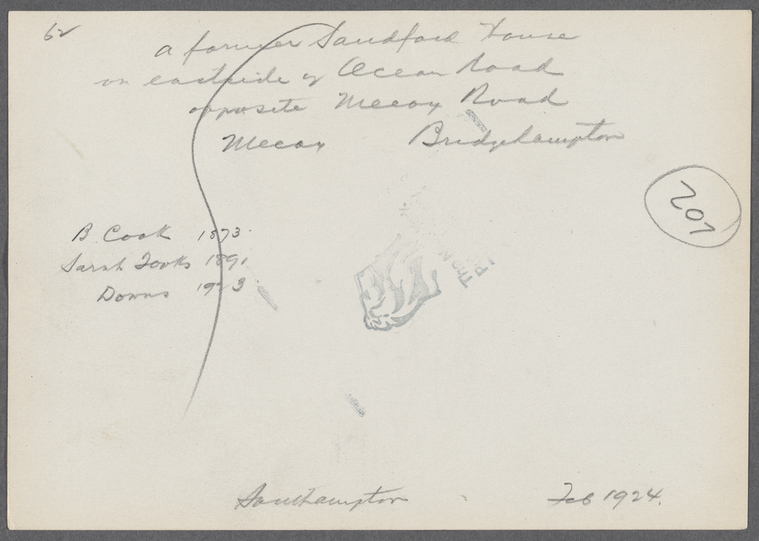 62
a former Sandford House
on eastside of Ocean Road
opposite Mecox Road
Mecox Bridgehampton
207
B. Cook 1873
Sarah Tooks 1891
Downs 1923
The N
Southampton Feb 1924.